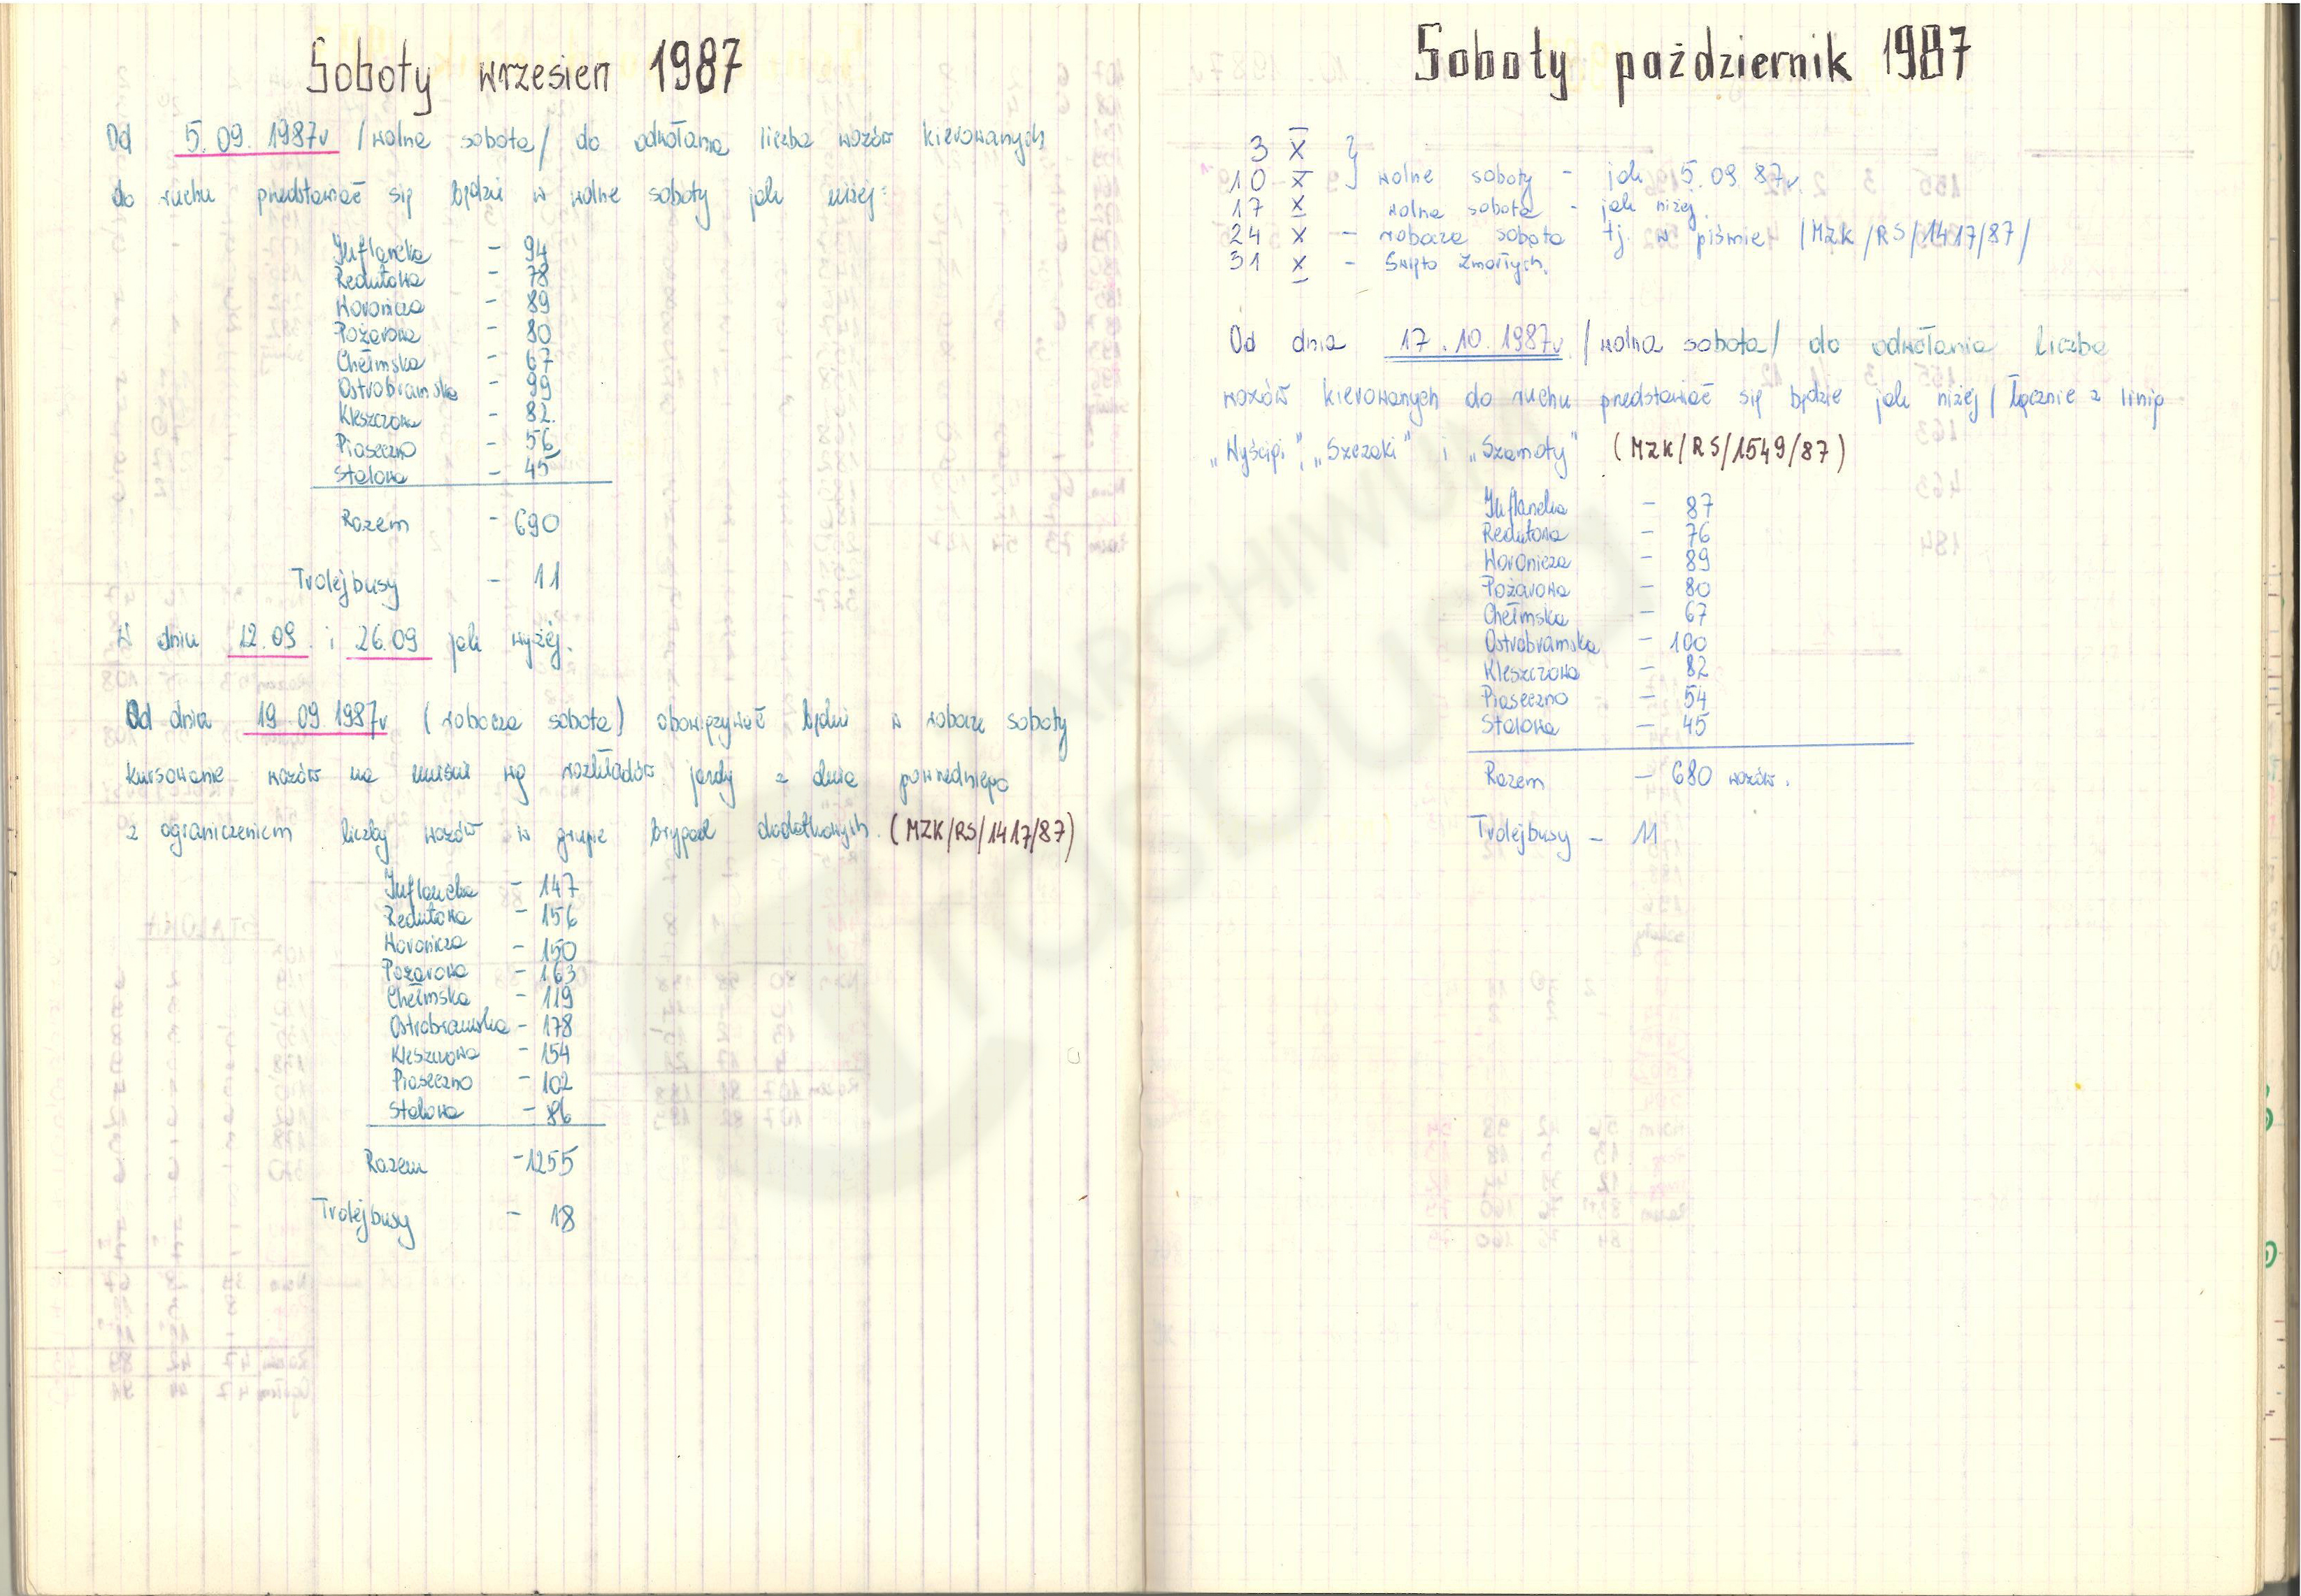 Soboty wrzesień 1987
Od 5.09.1987r /wolna sobota/ do odwołania liczba wozów kierowanych
do ruchu przedstawiać się będzie w wolne soboty jak niżej:
Inflancka - 94
Redutowa - 78
Woronicza - 89
Pożarowa - 80
Chełmska - 67
Ostrobramska - 99
Kleszczowa - 82.
Piaseczno - 56
Stalowa - 45
Razem - 690
Trolejbusy - 11
W dniu 12.09. i 26.09 jak wyżej.
Od dnia 19.09.1987r (robocza sobota) obowiązywać będzie w robocze soboty
kursowanie wozów na mieście wg rozkładów jazdy z dnia powszedniego
z ograniczeniem liczby wozów w grupie brygad dodatkowych. (MZK/RS/1417/87)
Inflancka - 147
Redutowa - 156
Woronicza - 150
Pożarowa - 163
Chełmska - 119
Ostrobramska - 178
Kleszczowa - 154
Piaseczno - 102
Stalowa - 86
Razem - 1255
Trolejbusy - 18
Soboty październik 1987
3 X }
10 X } wolne soboty - jak 5.09.87r
17 X wolna sobota - jak niżej.
24 X - robocza sobota tj. w piśmie /MZK/RS/1417/87/
31 X - Święto Zmarłych.
Od dnia 17.10.1987r. /wolna sobota/ do odwołania liczba
wozów kierowanych do ruchu przedstawiać się będzie jak niżej /łącznie z linią
„Wyścigi", „Szczaki" i „Szamoty" (MZK/RS/1549/87)
Inflancka - 87
Redutowa - 76
Woronicza - 89
Pożarowa - 80
Chełmska - 67
Ostrobramska - 100
Kleszczowa - 82
Piaseczno - 54
Stalowa - 45
Razem - 680 wozów.
Trolejbusy - 11
ARCHIWUM